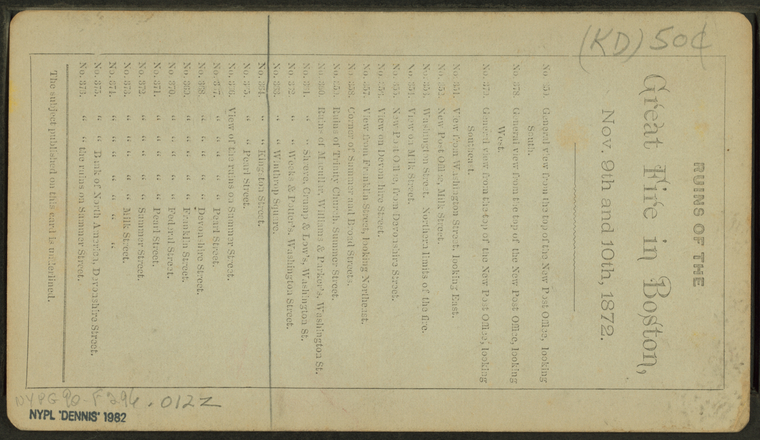 (KD) 50¢
RUINS OF THE
Great Fire in Boston,
Nov. 9th and 10th, 1872.
No. General view from the top of the New Post Office, looking
South.
No. 378. General view from the top of the New Post Office, looking
West.
No. General view from the top of the New Post Office, looking
Southeast.
No. 351. View from Washington Street, looking East.
No. New Post Office, Milk Street.
No. Washington Street. Northern limits of the fire.
No. View on Milk Street.
No. New Post Office, from Devonshire Street.
No. View on Devonshire Street.
No. View from Franklin Street, looking Northeast.
No. Corner of Summer and Broad Streets.
No. Ruins of Trinity Church, Summer Street.
No. Ruins of Macullar, Williams & Parker's, Washington St.
No. " " Shreve, Crump & Low's, Washington St.
No. " " Weeks & Potter's, Washington Street.
No. " " Winthrop Square.
No. 364. " " Kingston Street.
No. " " Pearl Street.
No. View of the ruins on Summer Street.
No. " " Pearl Street.
No. " " Devonshire Street.
No. 369. " " Franklin Street.
No. 370. " " Federal Street.
No. 371. " " Pearl Street.
No. 372. " " Summer Street.
No. 373. " " Milk Street.
No. 374. " " " "
No. " " Bank of North America, Devonshire Street.
No. " " the ruins on Summer Street.
The subject published on this card is underlined.
NYPG 90-F296.012Z
NYPL 'DENNIS' 1982